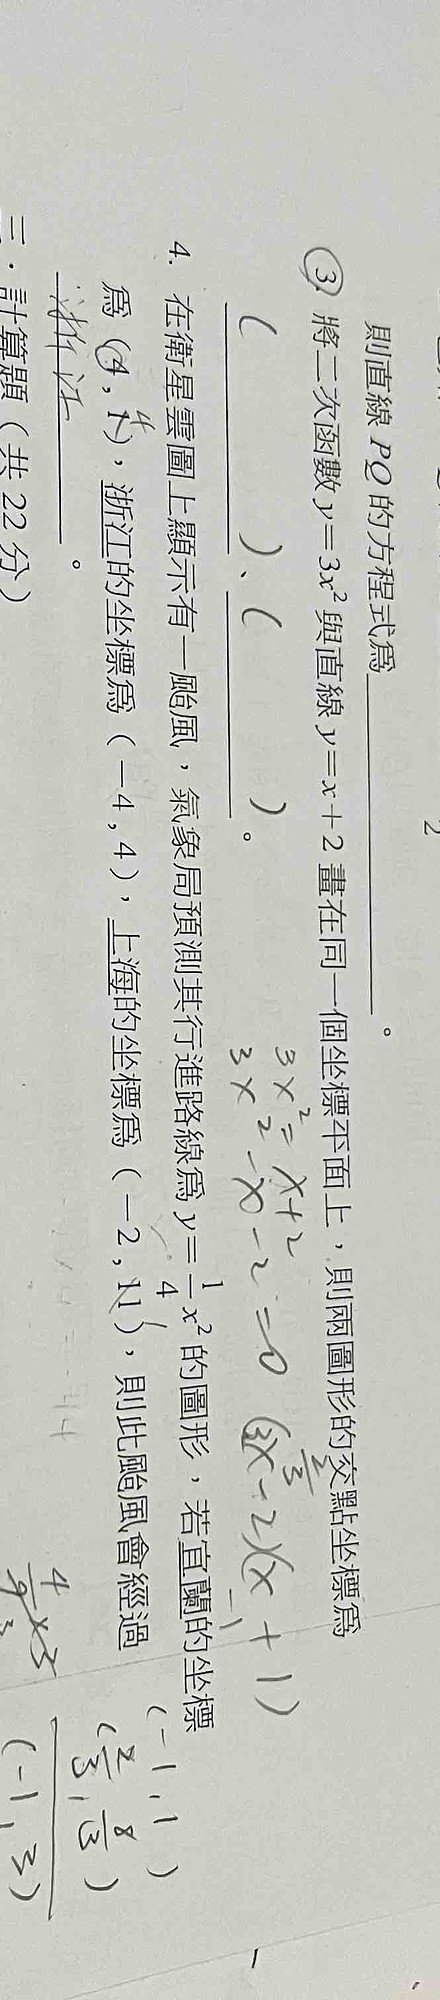 則直線 PQ 的方程式為 。
③ 將二次函數 y=3x²與直線 y=x+2 畫在同一個坐標平面上，則兩圖形的交點坐標為
( )、( )。
3x²=x+2
3x²-x-2=0 (3x-2)(x+1)
2/3 -1
4. 在衛星雲圖上顯示有一颱風，氣象局預測其行進路線為 y=1/4 x² 的圖形，若宜蘭的坐標
為 (4,1)，浙江的坐標為 (-4,4)，上海的坐標為 (-2,11)，則此颱風會經過
浙江 。
(-1,1)
(2/3,8/3)
(-1,3)
4/9×3
三．計算題（共 22 分）